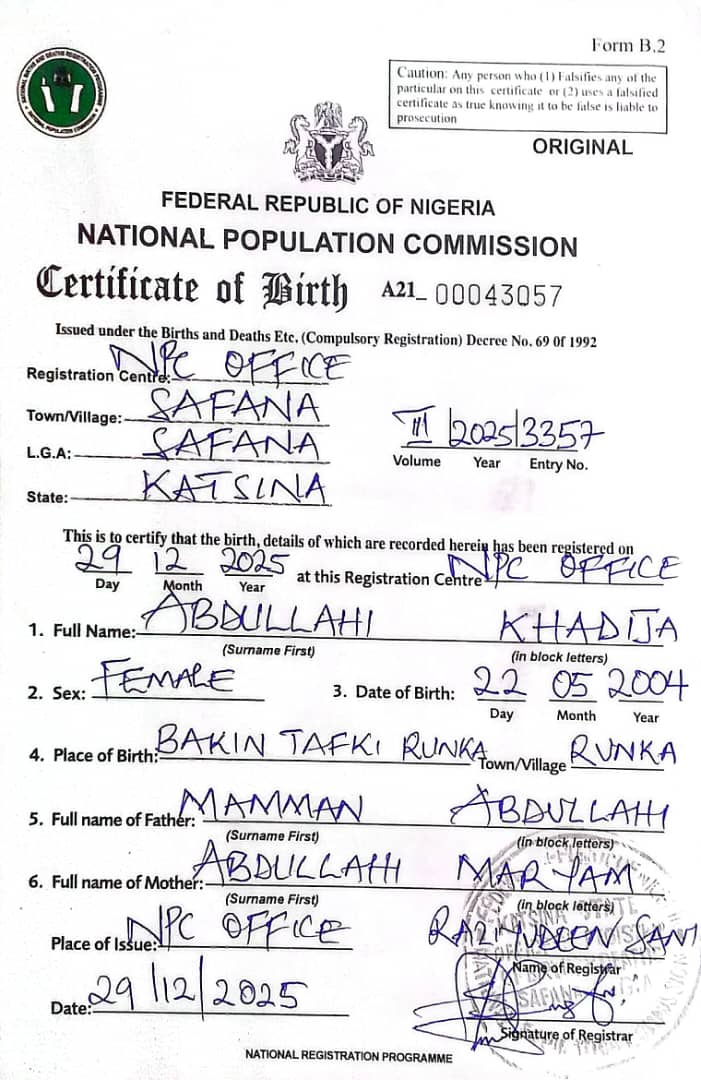 Form B.2
Caution: Any person who (1) Falsifies any of the
particular on this certificate or (2) uses a falsified
certificate as true knowing it to be false is liable to
prosecution
ORIGINAL
FEDERAL REPUBLIC OF NIGERIA
NATIONAL POPULATION COMMISSION
Certificate of Birth A21_ 00043057
Issued under the Births and Deaths Etc. (Compulsory Registration) Decree No. 69 Of 1992
Registration Centre: NPC OFFICE
Town/Village: SAFANA
L.G.A: SAFANA
III 2025 3357
Volume Year Entry No.
State: KATSINA
This is to certify that the birth, details of which are recorded herein has been registered on
29 12 2025 at this Registration Centre NPC OFFICE
Day Month Year
1. Full Name: ABDULLAHI KHADIJA
(Surname First) (in block letters)
2. Sex: FEMALE 3. Date of Birth: 22 05 2004
Day Month Year
4. Place of Birth: BAKIN TAFKI RUNKA Town/Village RUNKA
5. Full name of Father: MAMMAN ABDULLAHI
(Surname First) (in block letters)
6. Full name of Mother: ABDULLAHI MARYAM
(Surname First) (in block letters)
Place of Issue: NPC OFFICE
Name of Registrar
Date: 29/12/2025
Signature of Registrar
NATIONAL REGISTRATION PROGRAMME